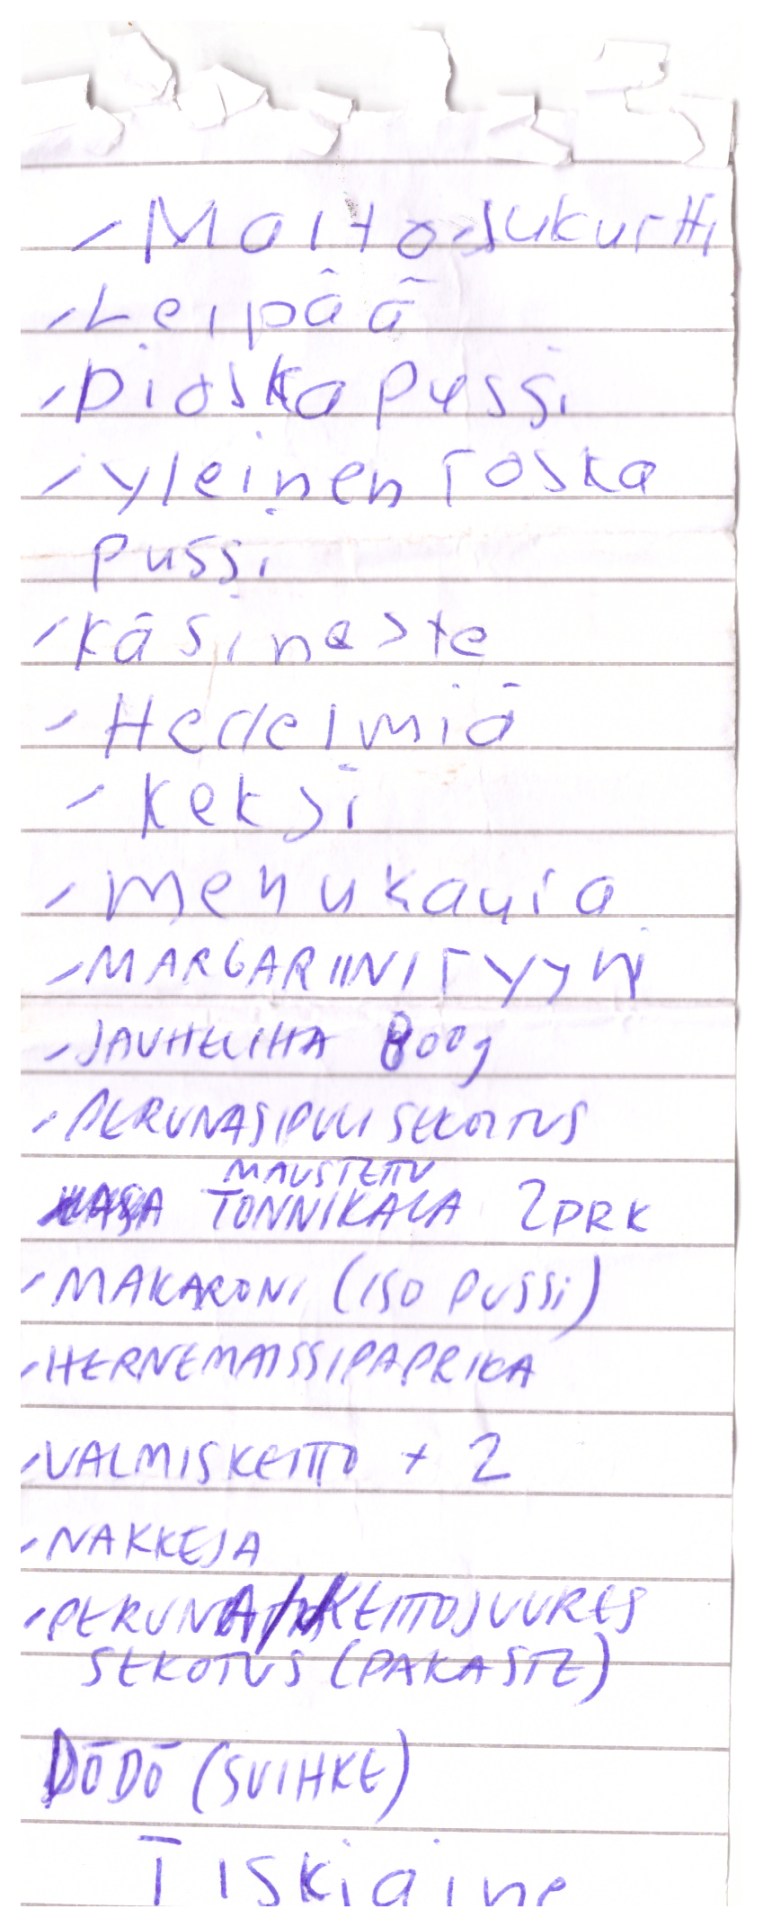 - Maito-Jukurtti
- Leipää
- Bioska pussi
- yleinen roska
pussi
- käsineste
- Hedelmiä
- keksi
- menukauia
- MARGARIINI TYYNI
- JAUHELIHA 800g
- PERUNASIPULISEKOITUS
MAUSTETTU
TONNIKALA 2PRK
- MAKARONI (ISO PUSSI)
- HERNEMAISSIPAPRIKA
- VALMISKEITTO + 2
- NAKKEJA
- PERUNA//KEITTOJUURES
SEKOTUS (PAKASTE)
DÖDÖ (SUIHKE)
Tiskiaine